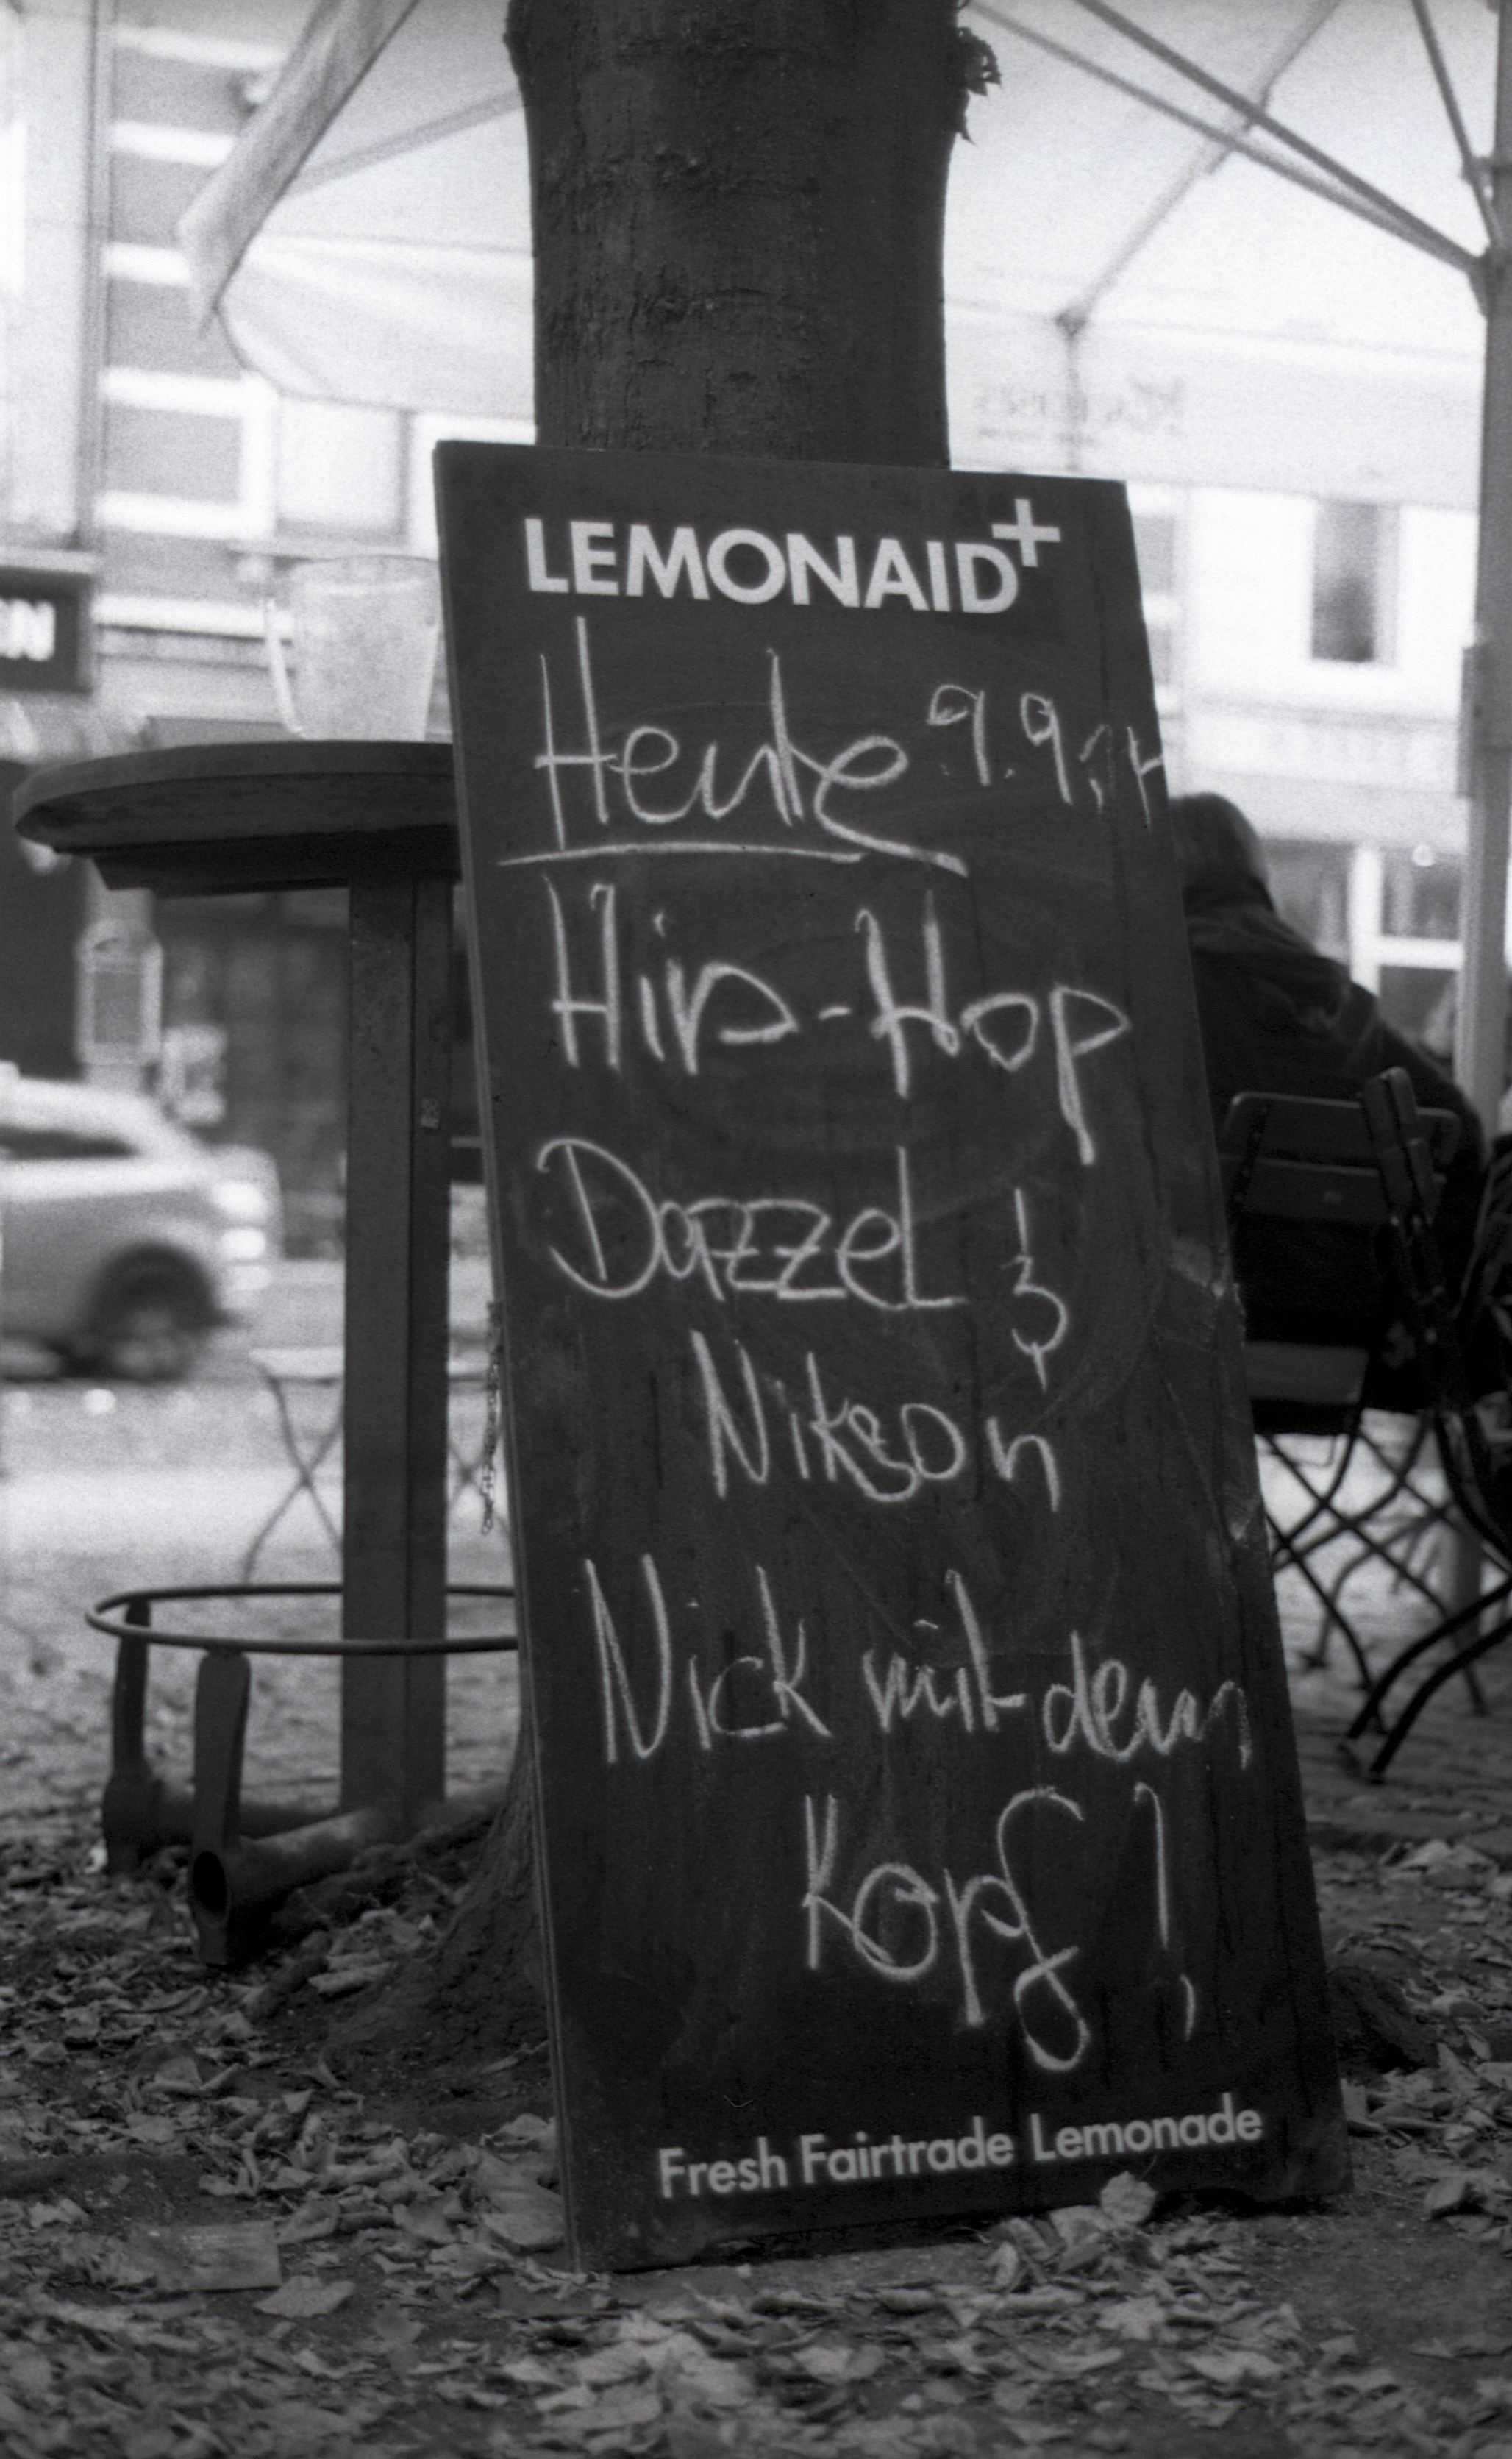 LEMONAID+
Heute 9.9.14
Hip-Hop
Dazzel &
Nikson
Nick mit dem
Kopf!
Fresh Fairtrade Lemonade